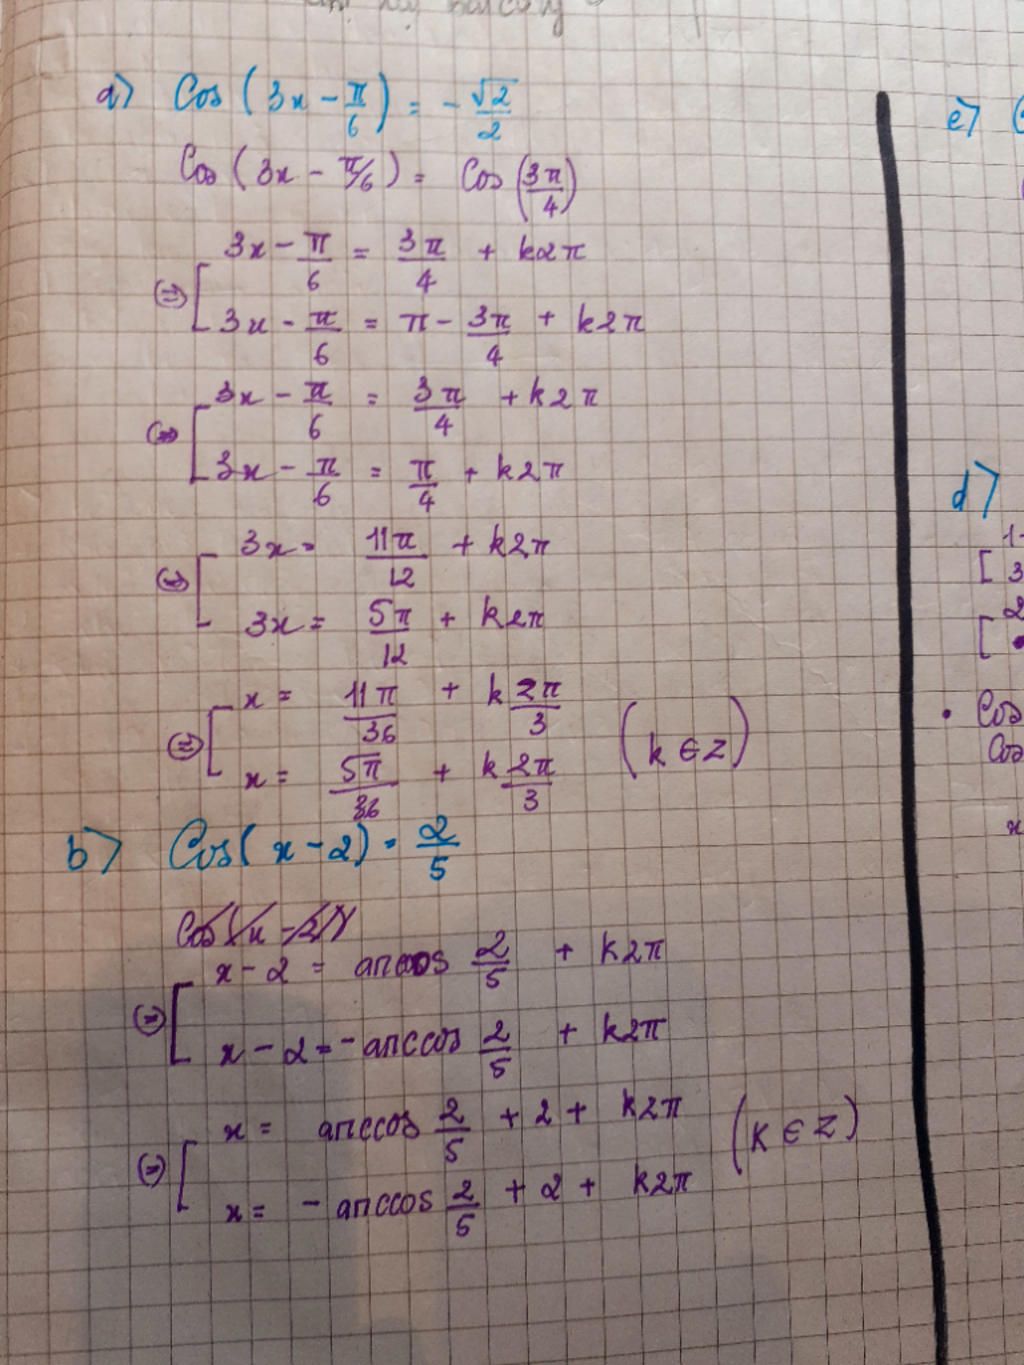 a) Cos(3x - π/6) = -√2/2
Cos(3x - π/6) = Cos(3π/4)
(=) [ 3x - π/6 = 3π/4 + k2π
3x - π/6 = π - 3π/4 + k2π
(=) [ 3x - π/6 = 3π/4 + k2π
3x - π/6 = π/4 + k2π
(=) [ 3x = 11π/12 + k2π
3x = 5π/12 + k2π
(=) [ x = 11π/36 + k2π/3
x = 5π/36 + k2π/3 (k ∈ Z)
b) Cos(x - 2) = 2/5
(=) [ x - 2 = arccos 2/5 + k2π
x - 2 = -arccos 2/5 + k2π
(=) [ x = arccos 2/5 + 2 + k2π
x = - arccos 2/5 + 2 + k2π (k ∈ Z)
e)
d)
[ 3
[
• Cos
Cos
x